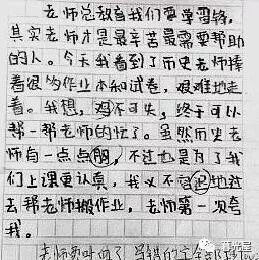 老师总教育我们要学雷锋，
其实老师才是最辛苦最需要帮助
的人。今天我看到了历史老师捧
着很多的作业本和试卷，艰难地走
着。我想，机不可失，终于可以
帮一帮老师的忙了。虽然历史老
师有一点点胸，不过也是为了我
们上课更认真，我义不容迟地过
去帮老师搬作业，老师第一次夸
我。